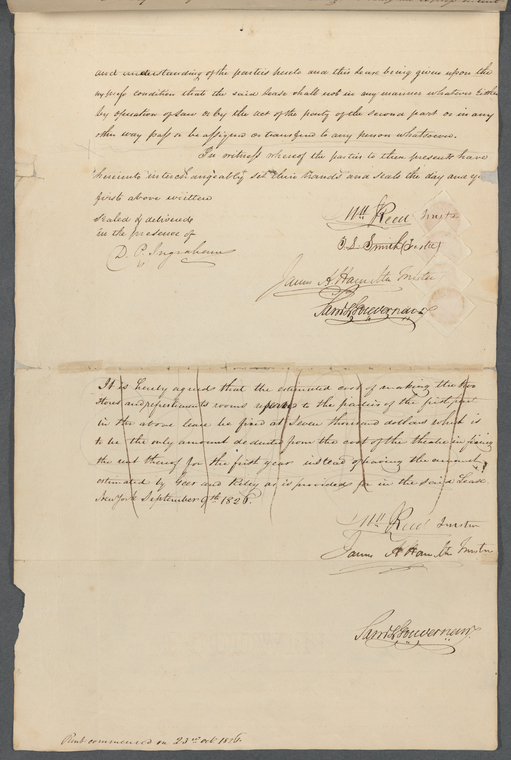 and understanding of the parties hereto and this lease being given upon the
express condition that the said lease shall not in any manner whatever either
by operation of law or by the act of the party of the second part or in any
other way pass or be assigned or transferred to any person whatsoever.
In witness whereof the parties to these presents have
hereunto interchangeably set their hands and seals the day and
first above written
Sealed & delivered
in the presence of
D. P. Ingraham
Wm Reed Trustee
T. L. Smith (Trustee)
James A Hamilton Trustee
Saml L Gouverneur
It is hereby agreed that the estimated cost of making the two
stores and refreshments rooms to the parties of the first part
in the above lease be fixed at Seven thousand dollars which is
to be the only amount deducted from the cost of the theatre in fixing
the rent thereof for the first year instead of fixing the amount
estimated by Geer and Riley as is provided for in the said Lease
New York September 9th 1826
Wm Reed Trustee
James A Hamilton Trustee
Saml L Gouverneur
Rent commenced on 23rd Oct 1826